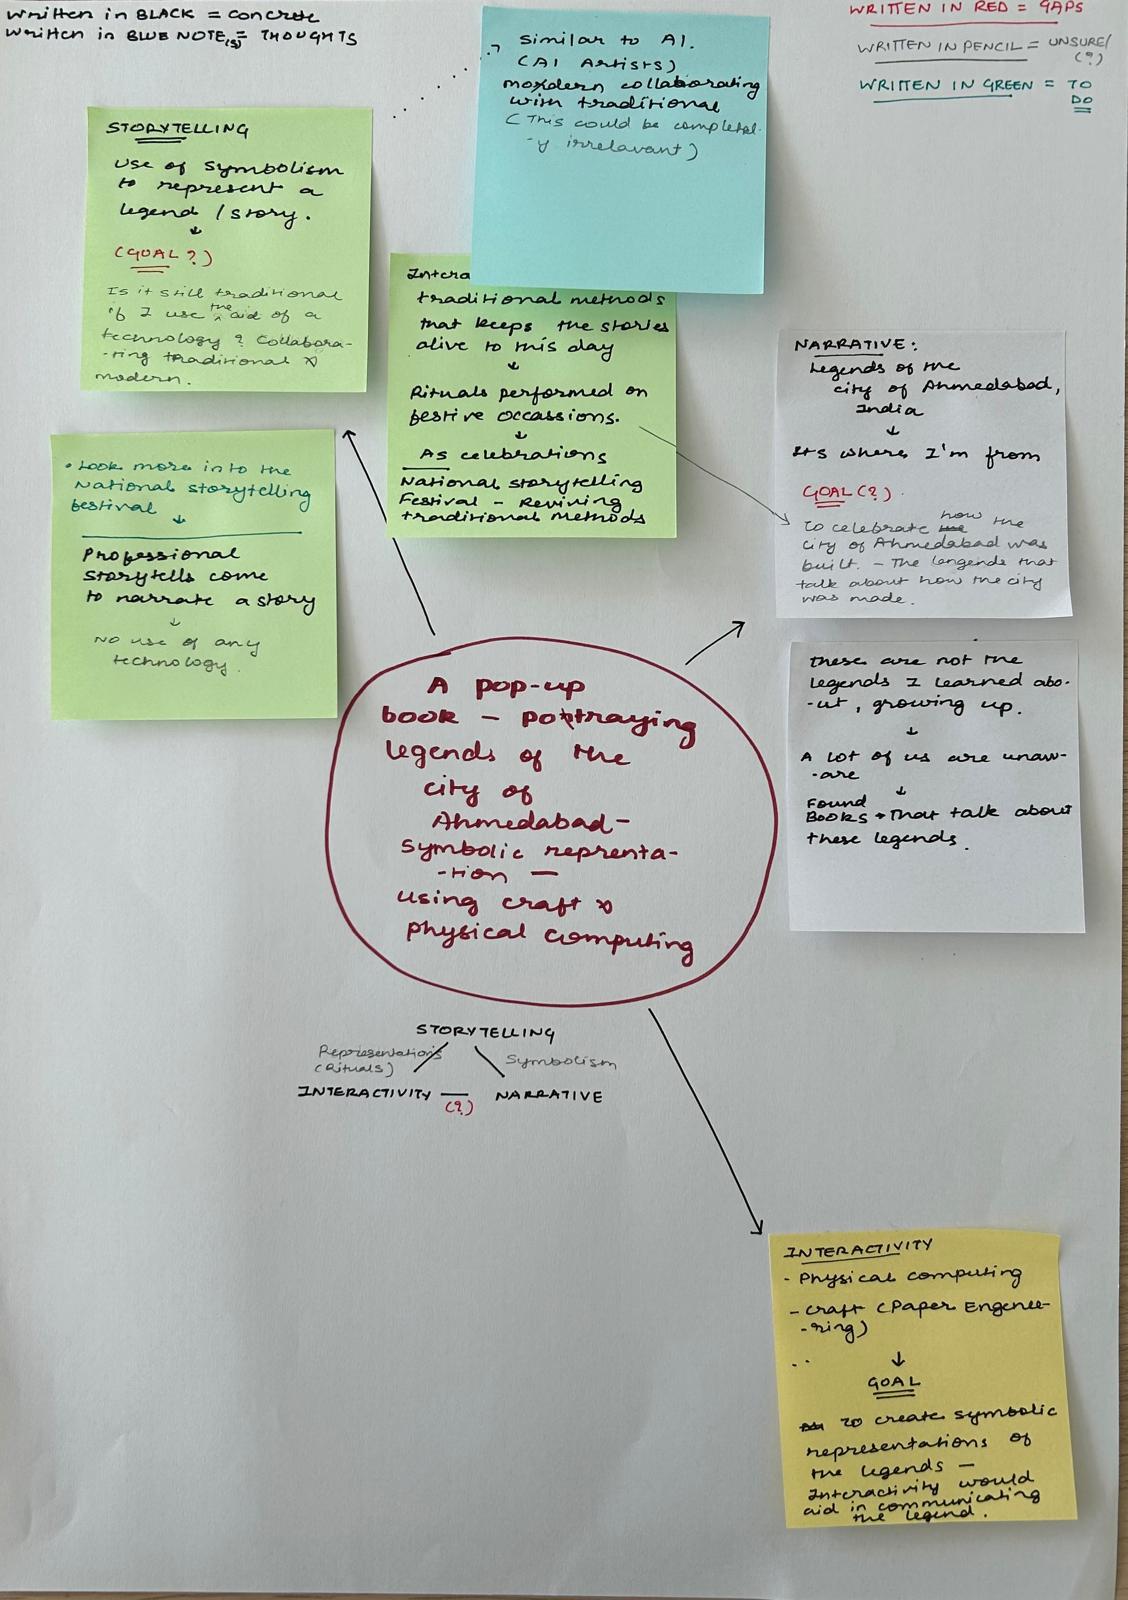 Written in BLACK = concrete
Written in BLUE NOTE(s) = THOUGHTS
WRITTEN IN RED = GAPS
WRITTEN IN PENCIL = UNSURE/
(?)
WRITTEN IN GREEN = TO
DO
Similar to AI.
(AI Artists)
modern collaborating
with traditional
(This could be completel-
-y irrelavant)
STORYTELLING
Use of symbolism
to represent a
legend / story.
↓
(GOAL ?)
Is it still traditional
if I use the aid of a
technology & collabora-
-ting traditional &
modern.
traditional methods
that keeps the stories
alive to this day
↓
Rituals performed on
festive occassions.
↓
As celebrations
National storytelling
Festival - Reviving
traditional methods
• Look more into the
National storytelling
festival
↓
Professional
storytells come
to narrate a story
↓
No use of any
technology.
NARRATIVE:
Legends of the
city of Ahmedabad,
India
↓
Its where I'm from
GOAL (?).
To celebrate how the
city of Ahmedabad was
built. - The langends that
talk about how the city
was made.
these are not the
legends I learned abo-
-ut, growing up.
↓
A lot of us are unaw-
-are
↓
Found
Books → that talk about
these legends.
A pop-up
book - potraying
legends of the
city of
Ahmedabad-
symbolic reprenta-
-tion -
using craft &
physical computing
STORYTELLING
Representations
(Rituals)
Symbolism
INTERACTIVITY — NARRATIVE
(?)
INTERACTIVITY
- Physical computing
- craft (Paper Enginee-
-ring)
↓
GOAL
To create symbolic
representations of
the legends -
Interactivity would
aid in communicating
the legend.